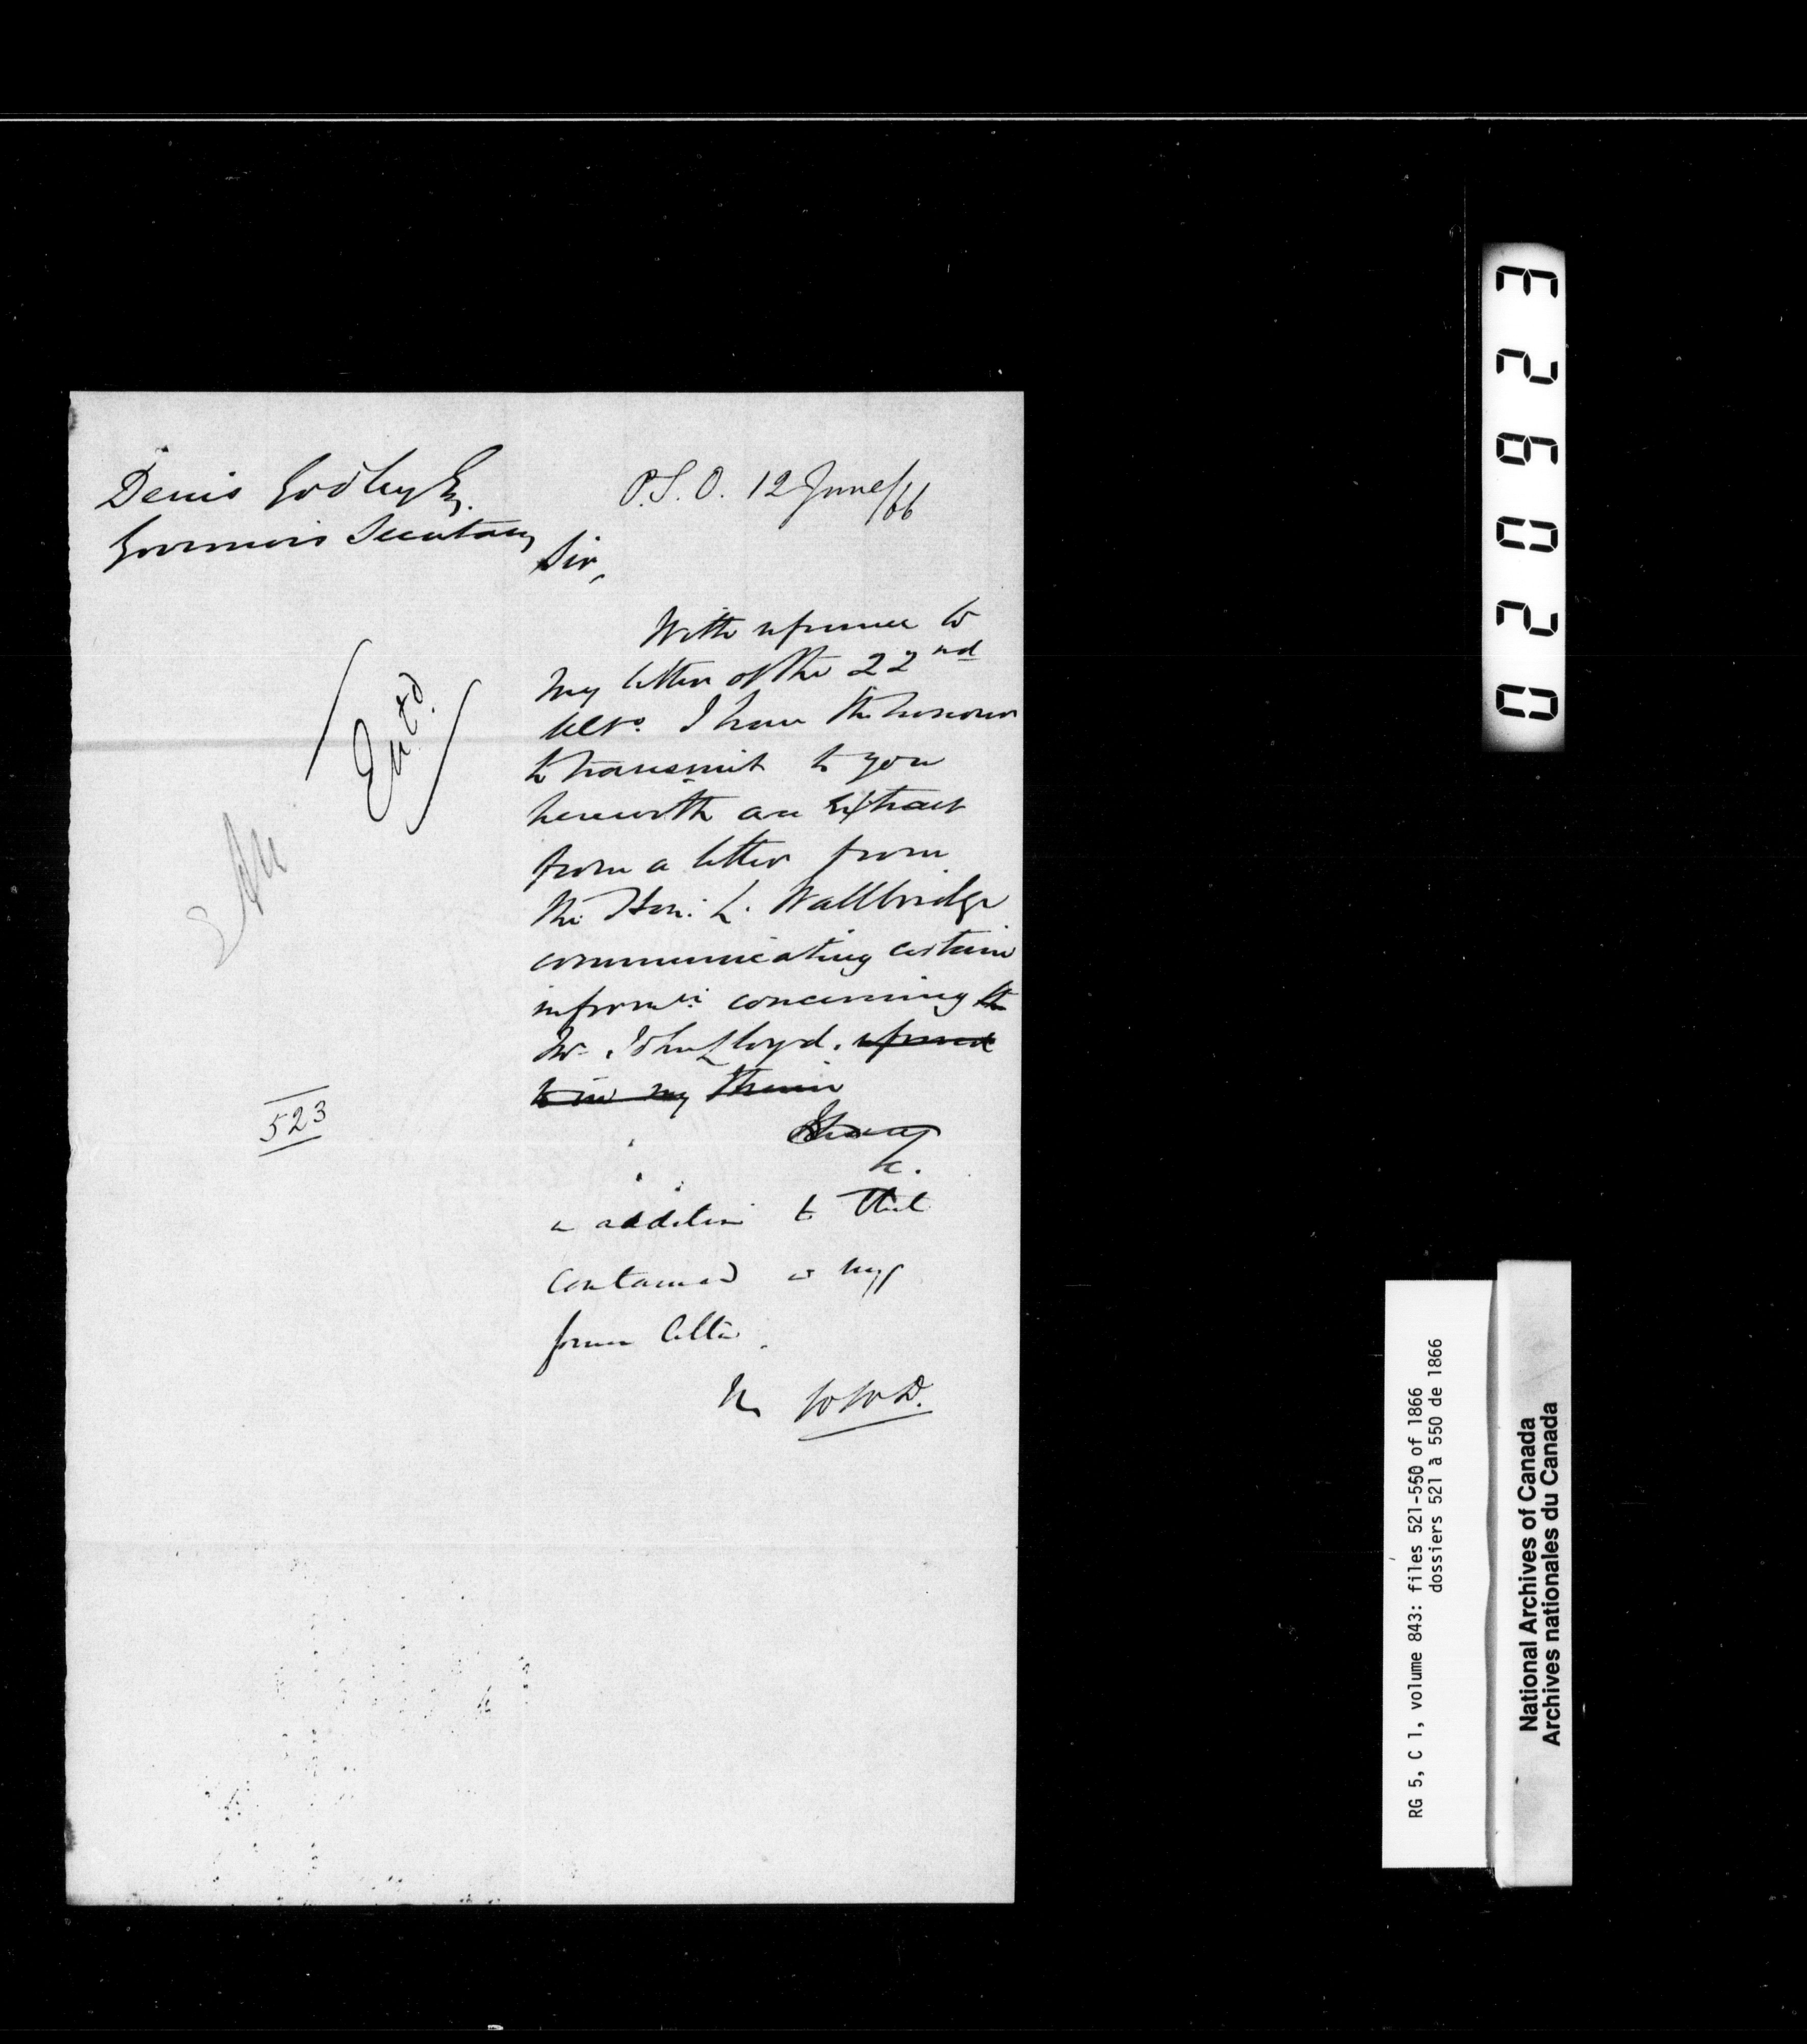 Denis Godley Esq.
Governor's Secretary
P.S.O. 12 June/66
Sir,
With reference to
my letter of the 22nd
ulto. I have the honour
to transmit to you
herewith an Extract
from a letter from
the Hon: L. Wallbridge
communicating certain
inform'n concerning the
Mr. John Lloyd. referred
to in my therein
I have
&c.
in addition to that
contained in my
former letter.
W W D.
Entd.
523
026023
RG 5, C 1, volume 843: files 521-550 of 1866
dossiers 521 à 550 de 1866
National Archives of Canada
Archives nationales du Canada